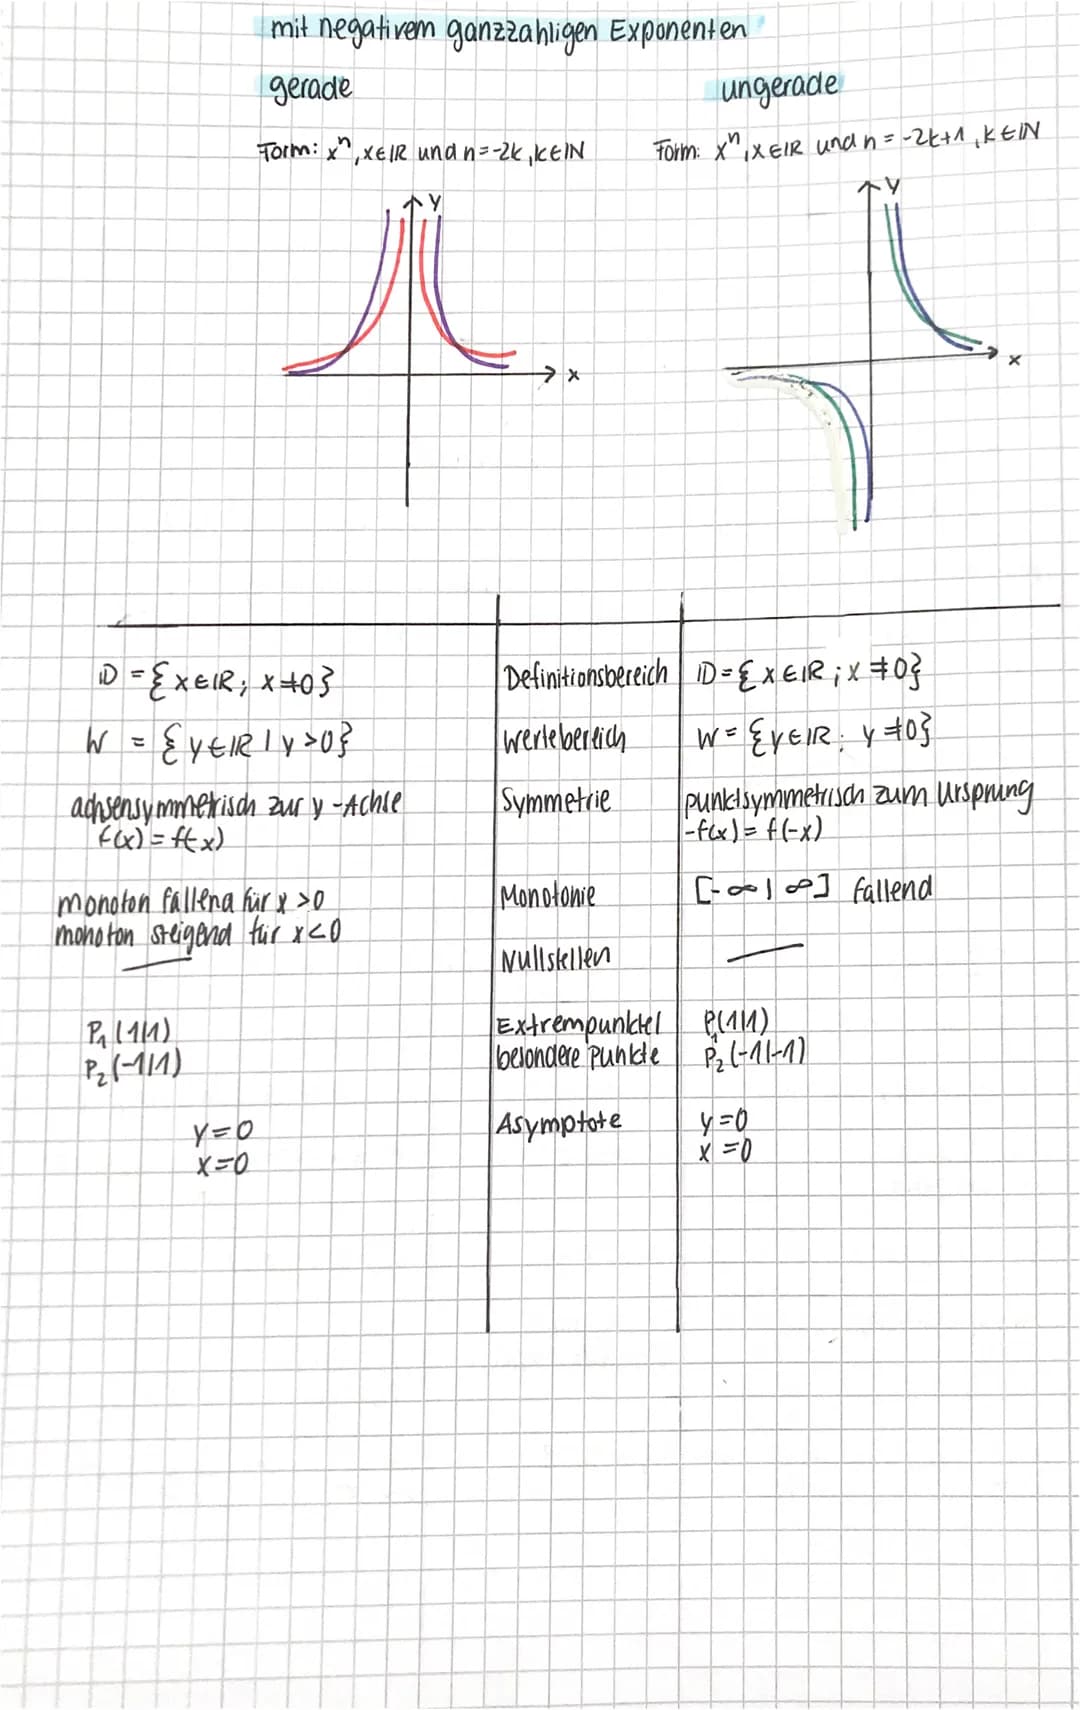 mit negativem ganzzahligen Exponenten
gerade
ungerade
Form: xⁿ, x∈ℝ und n=-2k, k∈ℕ
Form: xⁿ, x∈ℝ und n=-2k+1, k∈ℕ
y
x
y
x
𝔻 = {x∈ℝ; x≠0}
Definitionsbereich
𝔻 = {x∈ℝ; x≠0}
W = {y∈ℝ | y>0}
Wertebereich
W = {y∈ℝ; y≠0}
achsensymmetrisch zur y-Achse
f(x) = f(-x)
Symmetrie
punktsymmetrisch zum Ursprung
-f(x) = f(-x)
monoton fallend für x >0
monoton steigend für x<0
Monotonie
[-∞| ∞] fallend
—
Nullstellen
—
P₁ (1|1)
P₂ (-1|1)
Extrempunkte/
besondere Punkte
P₁(1|1)
P₂ (-1|-1)
y=0
x=0
Asymptote
y=0
x=0